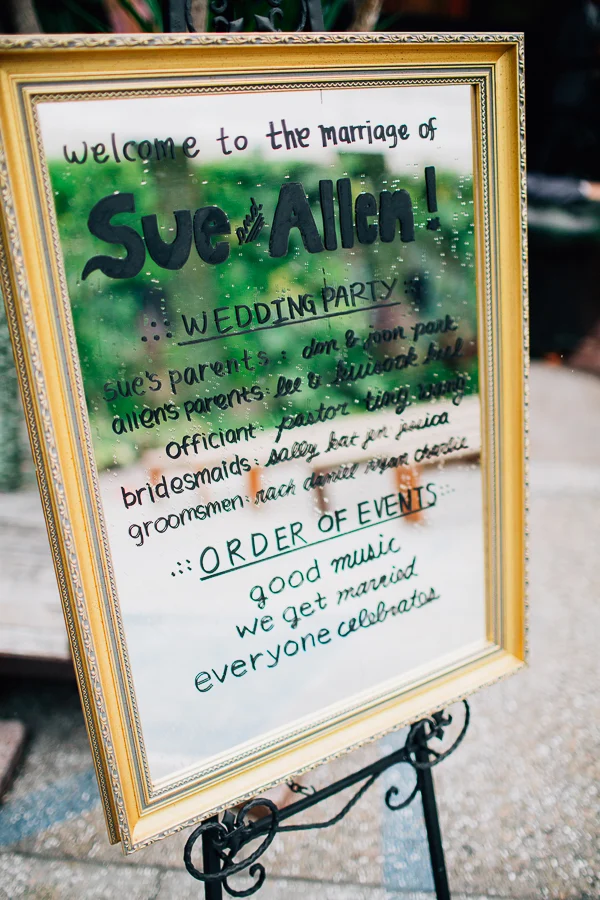 welcome to the marriage of
Sue & Allen!
.:: WEDDING PARTY ::
sue's parents: don & joon park
allen's parents: lee &
officiant: pastor ting
bridesmaids: sally kat jen jessica
groomsmen: zach daniel ryan charlie
.:: ORDER OF EVENTS ::.
good music
we get married
everyone celebrates